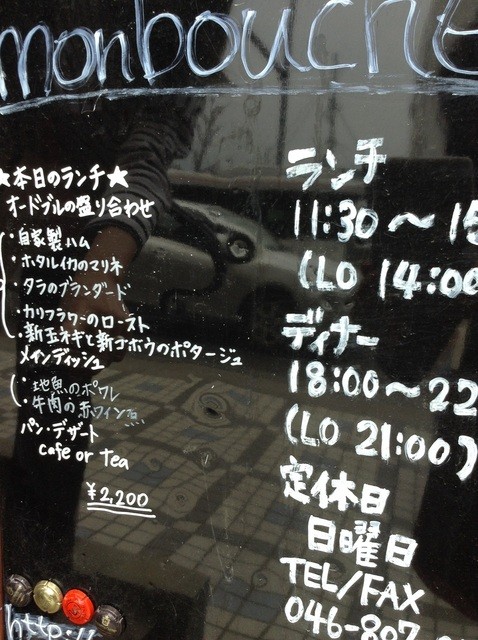 monbouche
★本日のランチ★
オードブルの盛り合わせ
・自家製ハム
・ホタルイカのマリネ
・タラのブランダード
・カリフラワーのロースト
・新玉ネギと新ゴボウのポタージュ
メインディッシュ
・地魚のポワレ
・牛肉の赤ワイン煮
パン・デザート
cafe or tea
¥2,200
ランチ
11:30〜15
(LO 14:00
ディナー
18:00〜22
(LO 21:00)
定休日
日曜日
TEL/FAX
046-807
http://